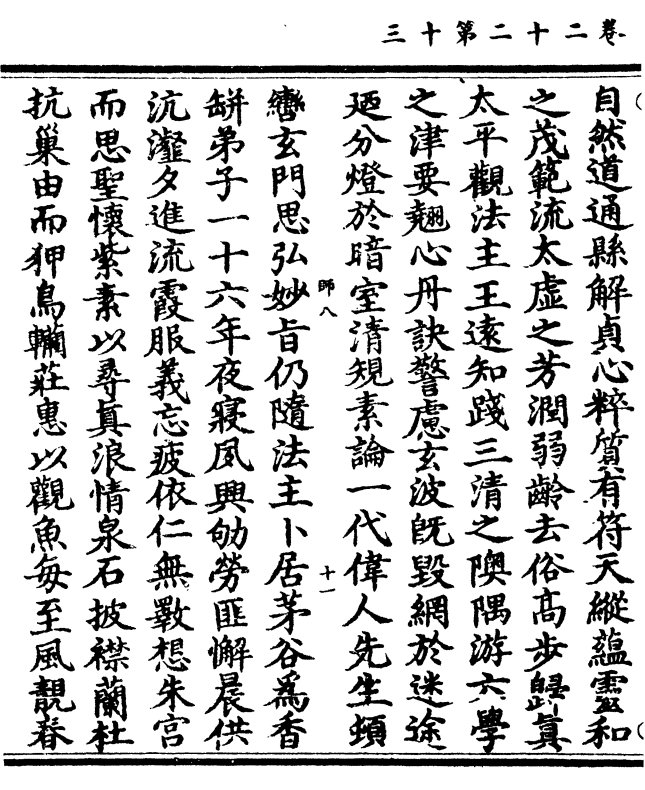 卷二十二第十三
自然道通縣解貞心粹質有符天縱藴靈和
之茂範流太虛之芳潤弱齡去俗高步歸真
太平觀法主王遠知踐三清之隩隅游六學
之津要翹心丹訣警慮玄波旣毀網於迷途
廼分燈於暗室清規素論一代偉人先生頓
師八
十一
轡玄門思弘妙旨仍隨法主卜居茅谷爲香
缾弟子一十六年夜寢夙興劬勞匪懈晨供
沆瀣夕進流霞服義忘疲依仁無斁想朱宮
而思聖懷紫素以尋真浪情泉石披襟蘭杜
抗巢由而狎鳥轥莊惠以觀魚每至風靚春